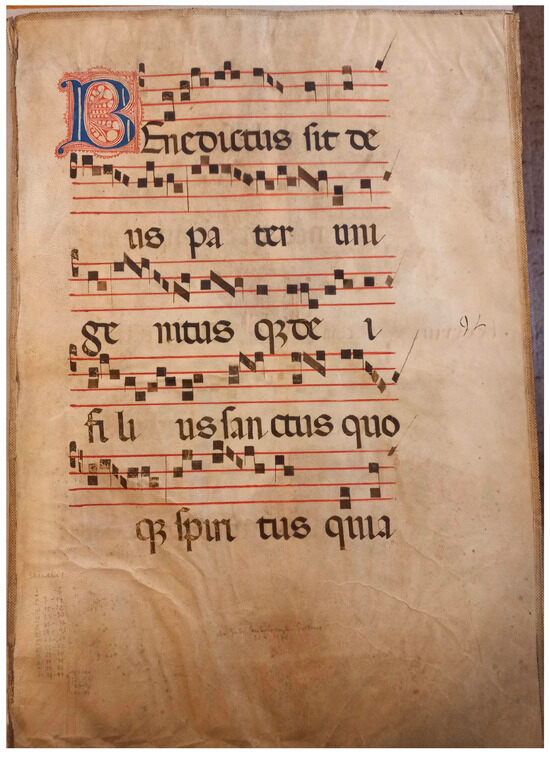 BEnedictus sit de
us pa ter uni
ge nitus qꝫ de i
fi li us san ctus quo
qꝫ spiri tus quia